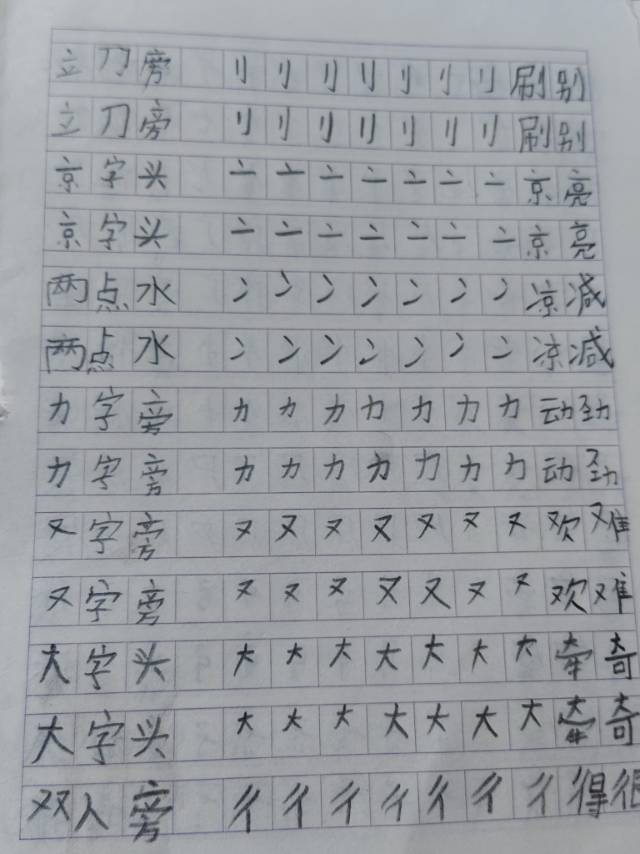 立刀旁 刂刂刂刂刂刂刂刷别
立刀旁 刂刂刂刂刂刂刂刷别
京字头 亠亠亠亠亠亠亠京亮
京字头 亠亠亠亠亠亠亠京亮
两点水 冫冫冫冫冫冫冫凉减
两点水 冫冫冫冫冫冫冫凉减
力字旁 力力力力力力力动劲
力字旁 力力力力力力力动劲
又字旁 又又又又又又又欢难
又字旁 又又又又又又又欢难
大字头 大大大大大大大牵奇
大字头 大大大大大大大牵奇
双人旁 彳彳彳彳彳彳彳得很